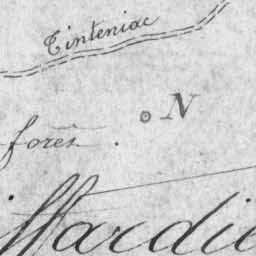 Tinteniac
N
foret
ffardie